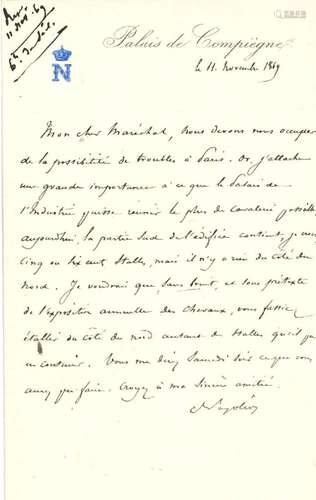 11 Nov. 69
N
Palais de Compiègne
le 11. Novembre 1869
Mon cher Maréchal, nous devons nous occuper
de la possibilité de troubles à Paris. Or, j'attache
une grande importance à ce que le Palais de
l'Industrie puisse réunir le plus de cavalerie possible
aujourdhui, la partie Sud de l'édifice contient, je crois,
cinq ou six cent stalles, mais il n'y a rien du côté du
Nord. Je voudrais que sans bruit, et sous prétexte
de l'exposition annuelle des chevaux, vous fassiez
établir du côté du nord autant de stalles qu'il peut
en contenir. Vous me direz Samedi soir ce que vous
aurez pu faire. Croyez à ma sincère amitié.
Napoléon